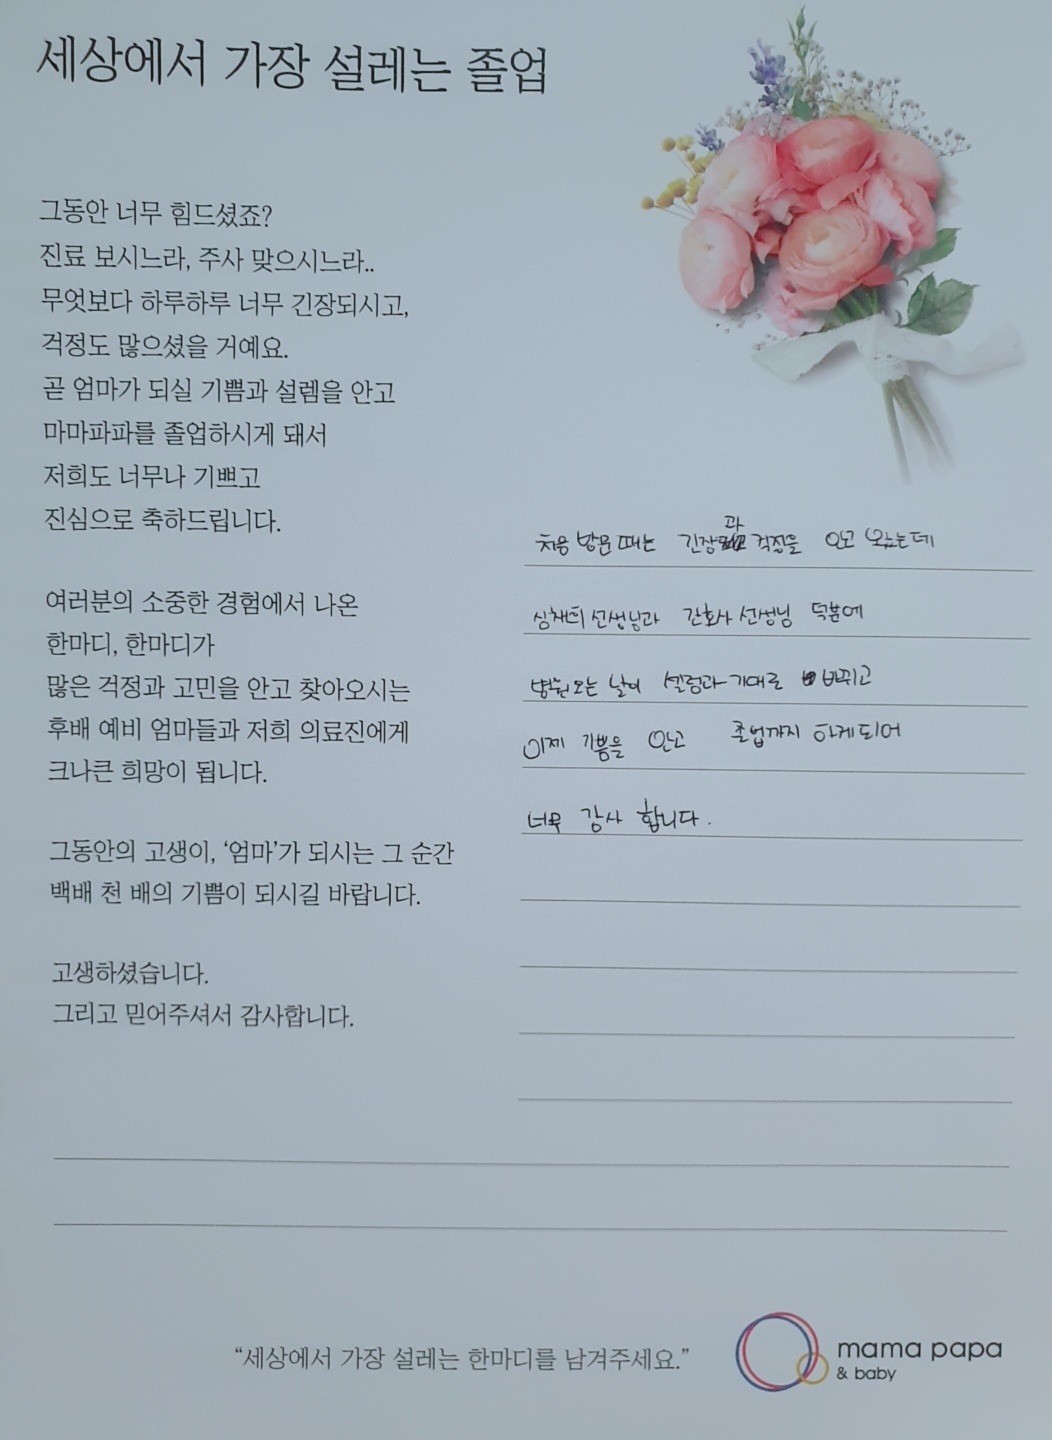 세상에서 가장 설레는 졸업
그동안 너무 힘드셨죠?
진료 보시느라, 주사 맞으시느라..
무엇보다 하루하루 너무 긴장되시고,
걱정도 많으셨을 거예요.
곧 엄마가 되실 기쁨과 설렘을 안고
마마파파를 졸업하시게 돼서
저희도 너무나 기쁘고
진심으로 축하드립니다.
여러분의 소중한 경험에서 나온
한마디, 한마디가
많은 걱정과 고민을 안고 찾아오시는
후배 예비 엄마들과 저희 의료진에게
크나큰 희망이 됩니다.
그동안의 고생이, ‘엄마’가 되시는 그 순간
백배 천 배의 기쁨이 되시길 바랍니다.
고생하셨습니다.
그리고 믿어주셔서 감사합니다.
처음 방문 때는 긴장과 걱정을 안고 왔는데
심채희 선생님과 간호사 선생님 덕분에
병원 오는 날이 설렘과 기대로 바뀌고
이제 기쁨을 안고 졸업까지 하게되어
너무 감사 합니다.
“세상에서 가장 설레는 한마디를 남겨주세요.”
mama papa
& baby